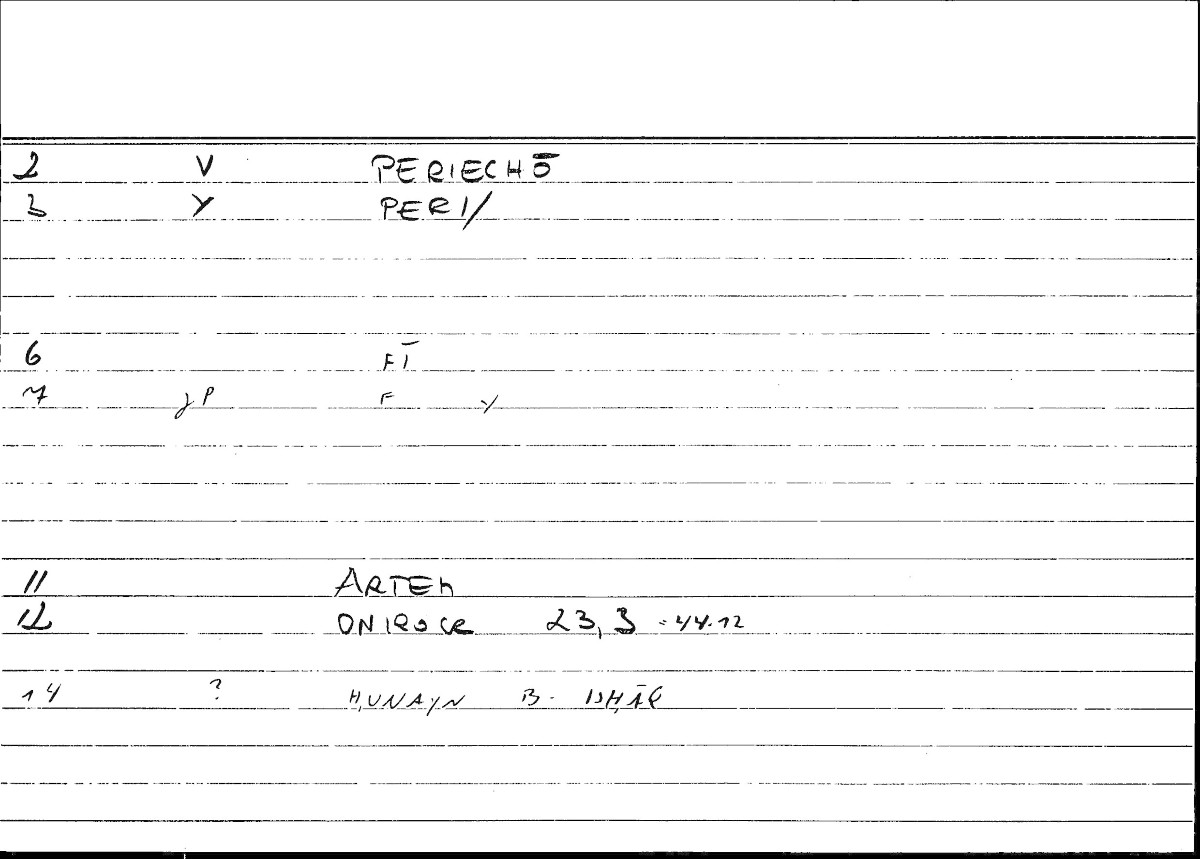 2 V PERIECHŌ
3 Y PERI/
6 FĪ
7 JP F Y
11 ARTEM
12 ONIROCR 23,3 = 44.12
14 ? ḤUNAYN B. ISḤĀQ